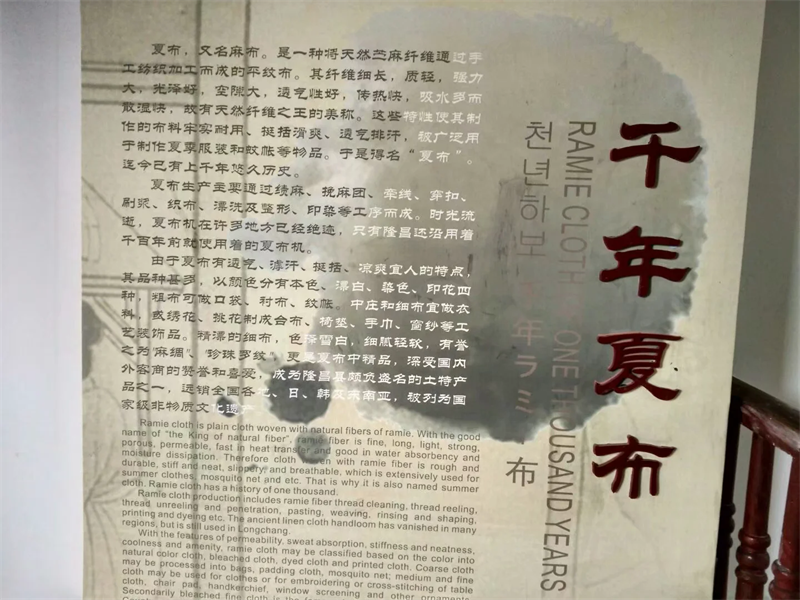 千年夏布
RAMIE CLOTH ONE THOUSAND YEARS
천년하보 年ラミー布
夏布，又名麻布。是一种将天然苎麻纤维通过手
工纺织加工而成的平纹布。其纤维细长，质轻，强力
大，光泽好，空隙大，透气性好，传热快，吸水多而
散湿快，故有天然纤维之王的美称。这些特性使其制
作的布料牢实耐用、挺括滑爽、透气排汗，被广泛用
于制作夏季服装和蚊帐等物品。于是得名“夏布”。
迄今已有上千年悠久历史。
夏布生产主要通过绩麻、挽麻团、牵线、穿扣、
刷浆、织布、漂洗及整形、印染等工序而成。时光流
逝，夏布机在许多地方已经绝迹，只有隆昌还沿用着
千百年前就使用着的夏布机。
由于夏布有透气、滤汗、挺括、凉爽宜人的特点，
其品种甚多，以颜色分有本色、漂白、染色、印花四
种，粗布可做口袋、衬布、纹帐。中庄和细布宜做衣
料，或绣花、挑花制成台布、椅垫、手巾、窗纱等工
艺装饰品。精漂的细布，色泽雪白，细腻轻软，有誉
之为“麻绸”、“珍珠罗纹”，更是夏布中精品，深受国内
外客商的赞誉和喜爱，成为隆昌县颇负盛名的土特产
品之一，远销全国各地、日、韩及东南亚，被列为国
家级非物质文化遗产
Ramie cloth is plain cloth woven with natural fibers of ramie. With the good
name of "the King of natural fiber", ramie fiber is fine, long, light, strong,
porous, permeable, fast in heat transfer and good in water absorbency and
moisture dissipation. Therefore cloth woven with ramie fiber is rough and
durable, stiff and neat, slippery and breathable, which is extensively used for
summer clothes, mosquito net and etc. That is why it is also named summer
cloth. Ramie cloth has a history of one thousand.
Ramie cloth production includes ramie fiber thread cleaning, thread reeling,
thread unreeling and penetration, pasting, weaving, rinsing and shaping,
printing and dyeing etc. The ancient linen cloth handloom has vanished in many
regions, but is still used in Longchang.
With the features of permeability, sweat absorption, stiffness and neatness,
coolness and amenity, ramie cloth may be classified based on the color into
natural color cloth, bleached cloth, dyed cloth and printed cloth. Coarse cloth
may be processed into bags, padding cloth, mosquito net; medium and fine
cloth may be used for clothes or for embroidering or cross-stitching of table
cloth, chair pad, handkerchief, window screening and other ornaments.
Secondarily bleached fine cloth is the